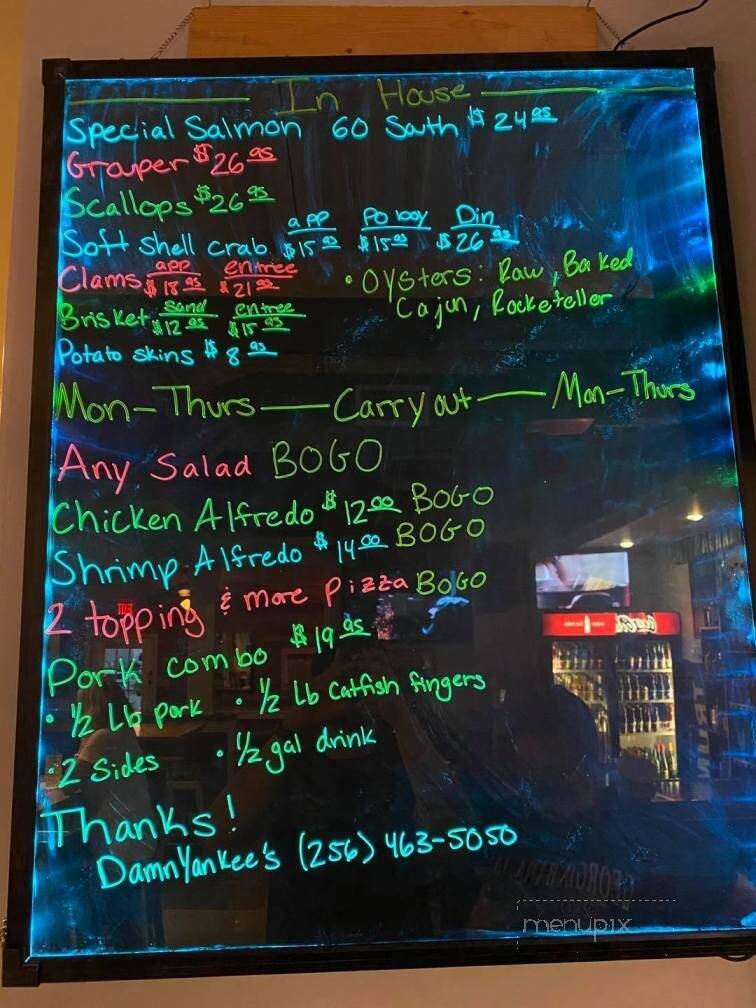 In House
Special Salmon 60 South $24.95
Grouper $26.95
Scallops $26.95
app Po boy Din
Soft Shell crab $15.95 $15.95 $26.95
app entree
Clams $18.95 $21.95
• Oysters: Raw, Baked
Cajun, Rockefeller
Sand entree
Brisket $12.95 $15.95
Potato skins $8.95
Mon-Thurs — Carry out — Mon-Thurs
Any Salad BOGO
Chicken Alfredo $12.00 BOGO
Shrimp Alfredo $14.00 BOGO
2 topping & more pizza BOGO
Pork combo $19.95
• 1/2 Lb pork • 1/2 Lb Catfish fingers
• 2 Sides • 1/2 gal drink
Thanks!
DamnYankee's (256) 463-5050
menupix